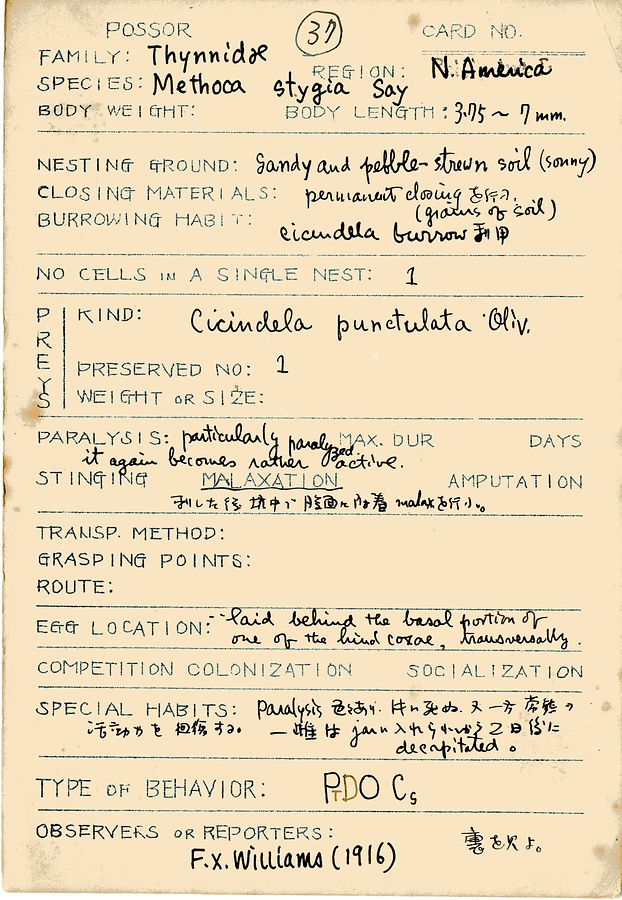 POSSOR 37 CARD NO.
FAMILY: Thynnidæ
REGION: N. America
SPECIES: Methoca stygia Say
BODY WEIGHT: BODY LENGTH: 3.75 ~ 7 mm.
NESTING GROUND: Sandy and pebble-strewn soil (sonny)
CLOSING MATERIALS: permanent closing を行ス.
(grains of soil)
BURROWING HABIT:
cicindela burrow 利用
NO CELLS IN A SINGLE NEST: 1
PREYS
KIND: Cicindela punctulata Oliv.
PRESERVED NO: 1
WEIGHT OR SIZE:
PARALYSIS: particularly paralyzed MAX. DUR DAYS
it again becomes rather active.
STINGING MALAXATION AMPUTATION
刺した後 坑中で malaxを行ふ。
TRANSP. METHOD:
GRASPING POINTS:
ROUTE:
EGG LOCATION: -- laid behind the basal portion of
one of the hind coxae, transversally.
COMPETITION COLONIZATION SOCIALIZATION
SPECIAL HABITS: Paralysis 死ぬ. 又一方 常態の
活動力を回復する。 一雌は jawに入れられながら 2日後に
decapitated。
TYPE OF BEHAVIOR: PTDO Cs
OBSERVERS OR REPORTERS: 裏を見よ。
F.X. Williams (1916)